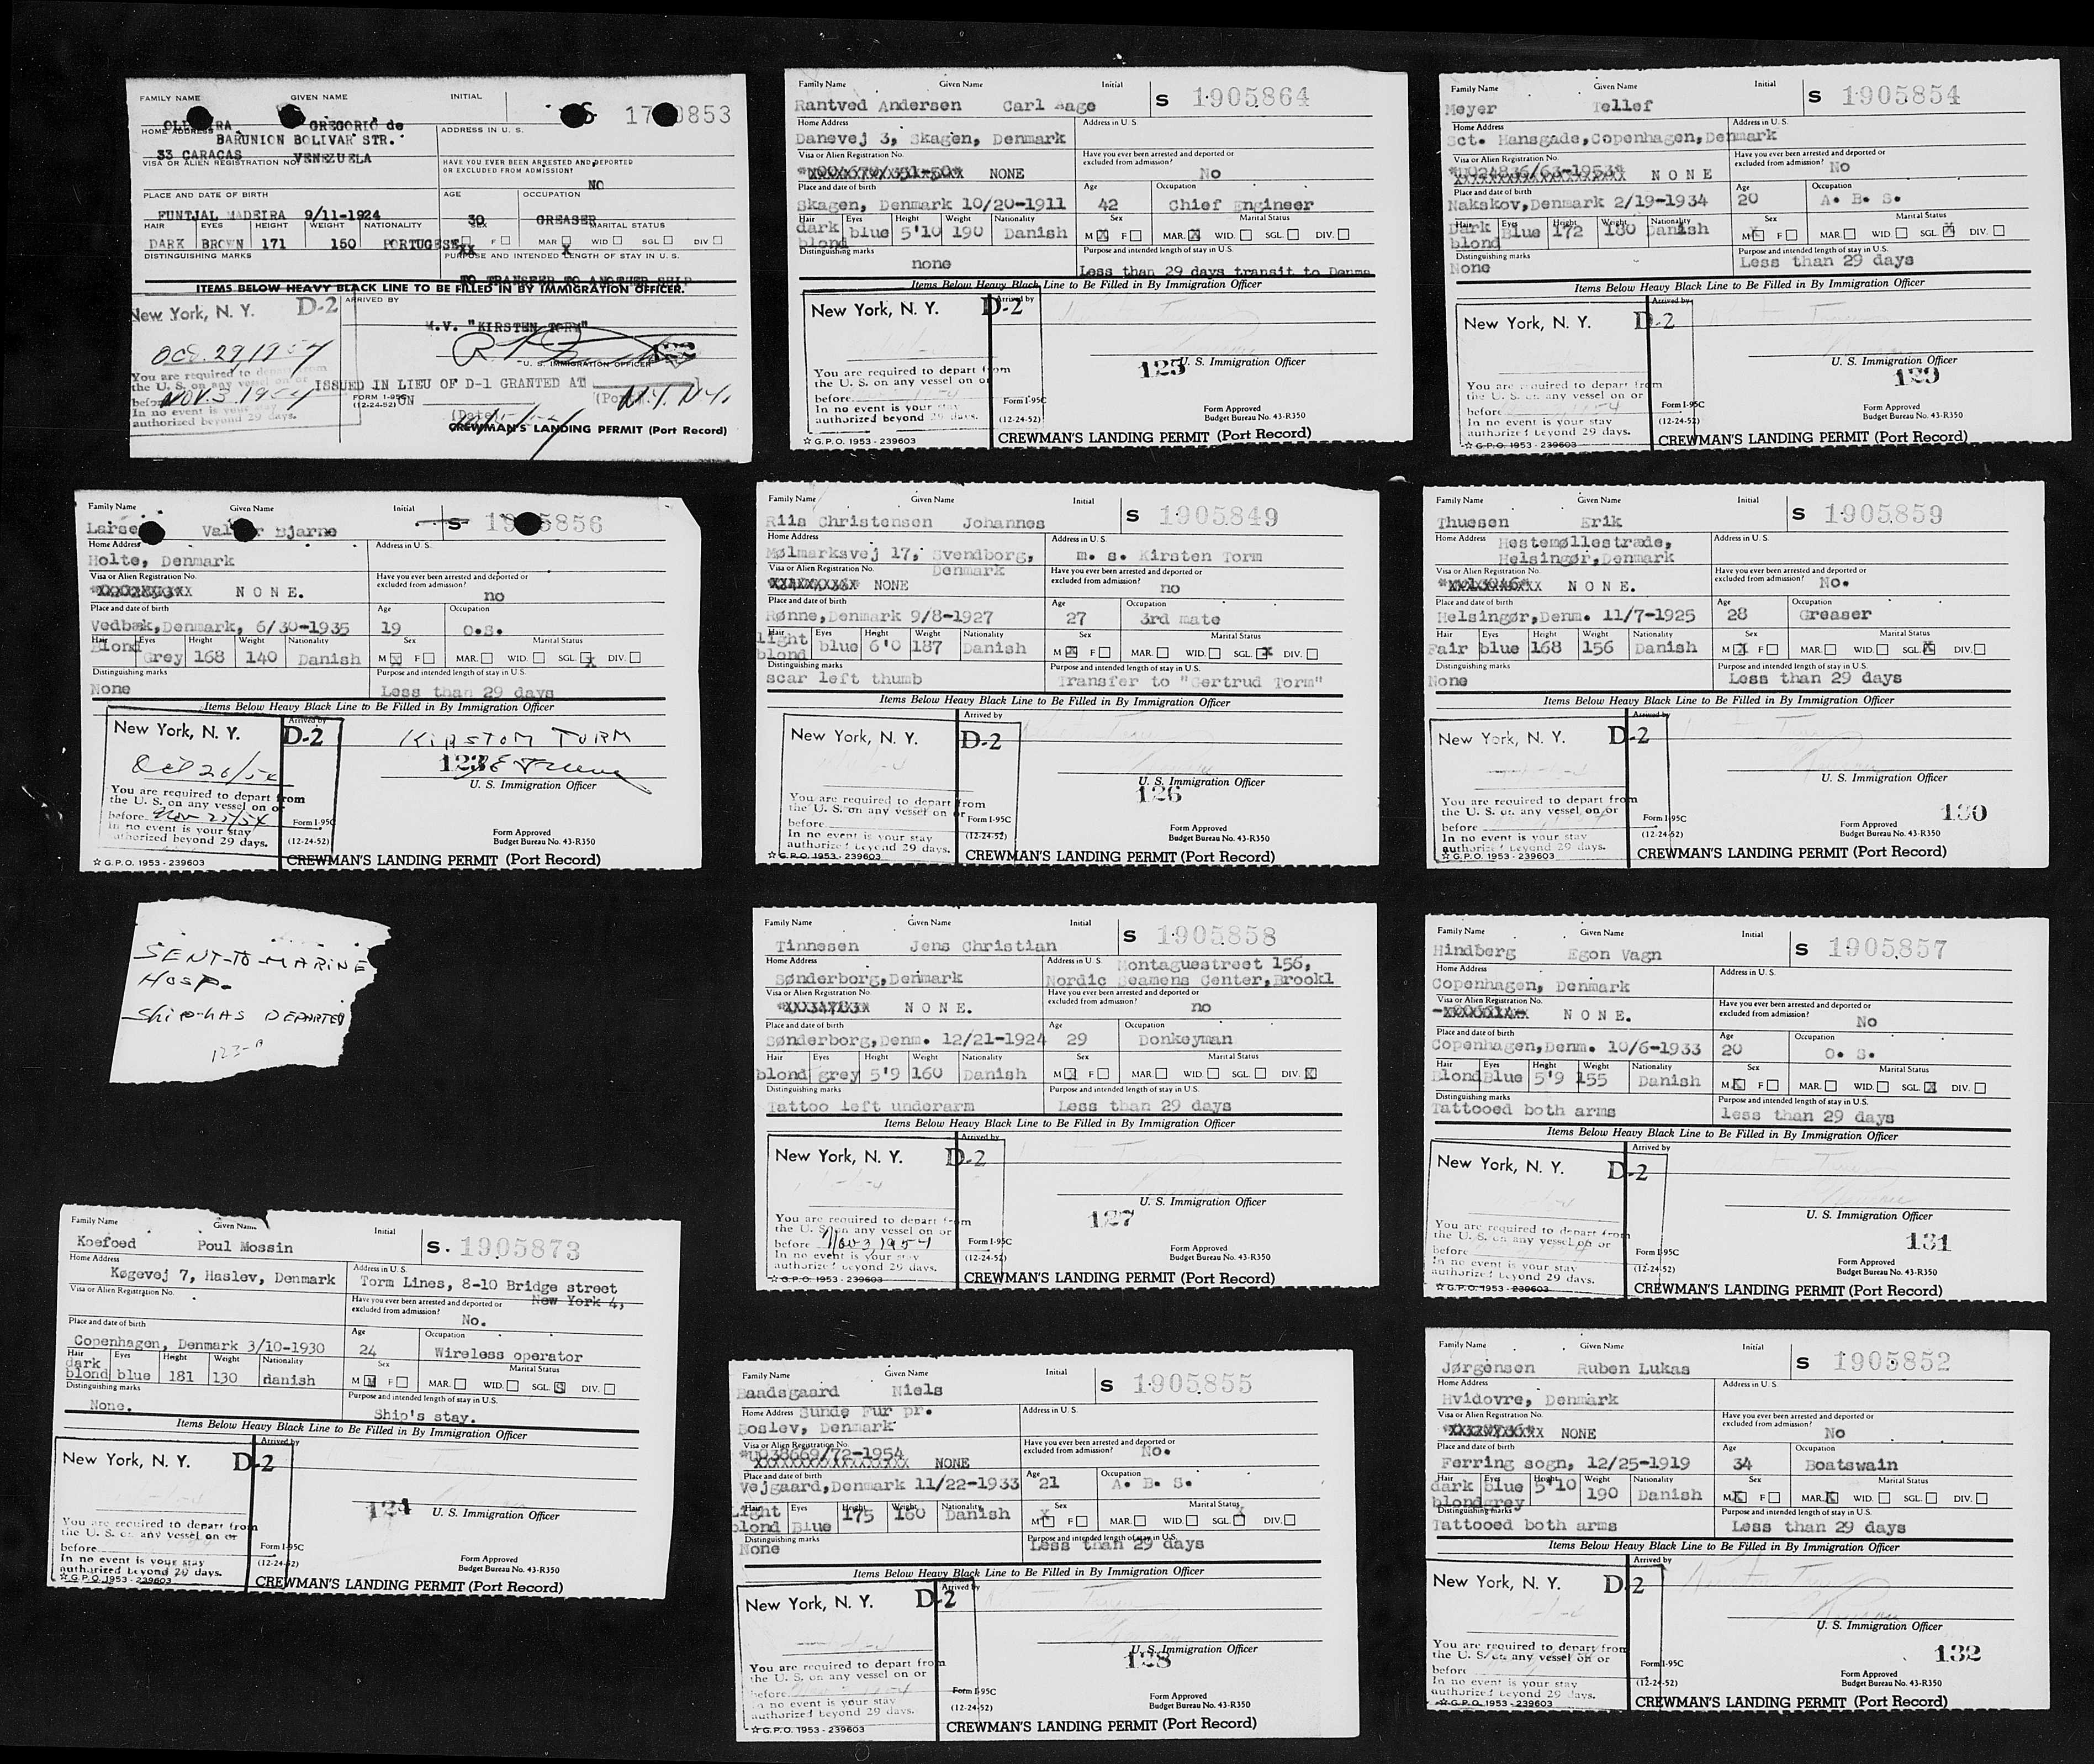 FAMILY NAME GIVEN NAME INITIAL
GREGORIO de
HOME ADDRESS ADDRESS IN U. S.
BARUNION BOLIVAR STR.
33 CARACAS VENEZUELA
VISA OR ALIEN REGISTRATION NO
HAVE YOU EVER BEEN ARRESTED AND DEPORTED
OR EXCLUDED FROM ADMISSION?
NO
PLACE AND DATE OF BIRTH AGE OCCUPATION
FUNTJAL MADEIRA 9/11-1924 30 GREASER
HAIR EYES HEIGHT WEIGHT NATIONALITY SEX MARITAL STATUS
DARK BROWN 171 150 PORTUGESE F MAR X WID SGL DIV
DISTINGUISHING MARKS PURPOSE AND INTENDED LENGTH OF STAY IN U. S.
TO TRANSFER TO ANOTHER SHIP
ITEMS BELOW HEAVY BLACK LINE TO BE FILLED IN BY IMMIGRATION OFFICER.
New York, N. Y. D-2 ARRIVED BY
M.V. "KIRSTEN TORM"
Oct. 29, 1954
122
U. S. IMMIGRATION OFFICER
You are required to depart from
the U. S. on any vessel on or
before Nov. 3 1954
In no event is your stay
authorized beyond 29 days.
ISSUED IN LIEU OF D-1 GRANTED AT N.Y. N.Y.
(Port)
FORM I-95C
(12-24-52)
ON
(Date)
CREWMAN'S LANDING PERMIT (Port Record)
Family Name Given Name Initial
Rantved Andersen Carl Aage S 1905864
Home Address Address in U. S.
Danevej 3, Skagen, Denmark
Visa or Alien Registration No. Have you ever been arrested and deported or
excluded from admission?
NONE No
Place and date of birth Age Occupation
Skagen, Denmark 10/20-1911 42 Chief Engineer
Hair Eyes Height Weight Nationality Sex Marital Status
dark blond blue 5'10 190 Danish M X F MAR. X WID. SGL. DIV.
Distinguishing marks Purpose and intended length of stay in U.S.
none Less than 29 days transit to Denma
Items Below Heavy Black Line to Be Filled in By Immigration Officer
New York, N. Y. D-2 Arrived by
125 U. S. Immigration Officer
You are required to depart from
the U. S. on any vessel on or
before
In no event is your stay
authorized beyond 29 days.
Form I-95C
(12-24-52)
Form Approved
Budget Bureau No. 43-R350
☆ G.P.O. 1953 - 239603
CREWMAN'S LANDING PERMIT (Port Record)
Family Name Given Name Initial
Meyer Tellef S 1905854
Home Address Address in U. S.
Sct. Hansgade, Copenhagen, Denmark
Visa or Alien Registration No. Have you ever been arrested and deported or
excluded from admission?
NONE No
Place and date of birth Age Occupation
Nakskov, Denmark 2/19-1934 20 A. B. S.
Hair Eyes Height Weight Nationality Sex Marital Status
Dark blond Blue 172 180 Danish M X F MAR. WID. SGL. X DIV.
Distinguishing marks Purpose and intended length of stay in U.S.
None Less than 29 days
Items Below Heavy Black Line to Be Filled in By Immigration Officer
New York, N. Y. D-2 Arrived by
U. S. Immigration Officer
129
You are required to depart from
the U. S. on any vessel on or
before
In no event is your stay
authorized beyond 29 days.
Form I-95C
(12-24-52)
Form Approved
Budget Bureau No. 43-R350
☆ G.P.O. 1953 - 239603
CREWMAN'S LANDING PERMIT (Port Record)
Family Name Given Name Initial
Bjarne S
Home Address Address in U. S.
Holte, Denmark
Visa or Alien Registration No. Have you ever been arrested and deported or
excluded from admission?
NONE. no
Place and date of birth Age Occupation
Vedbæk, Denmark, 6/30-1935 19 O.S.
Hair Eyes Height Weight Nationality Sex Marital Status
Blond Grey 168 140 Danish M X F MAR. WID. SGL. X DIV.
Distinguishing marks Purpose and intended length of stay in U.S.
None Less than 29 days
Items Below Heavy Black Line to Be Filled in By Immigration Officer
New York, N. Y. D-2 Arrived by
KIRSTOM TORM
Oct 26/54 123
U. S. Immigration Officer
You are required to depart from
the U. S. on any vessel on or
before Nov 25/54
In no event is your stay
authorized beyond 29 days.
Form I-95C
(12-24-52)
Form Approved
Budget Bureau No. 43-R350
☆ G.P.O. 1953 - 239603
CREWMAN'S LANDING PERMIT (Port Record)
Family Name Given Name Initial
Riis Christensen Johannes S 1905849
Home Address Address in U. S.
Mølmarksvej 17, Svendborg, Denmark m. s. Kirsten Torm
Visa or Alien Registration No. Have you ever been arrested and deported or
excluded from admission?
NONE no
Place and date of birth Age Occupation
Rønne, Denmark 9/8-1927 27 3rd mate
Hair Eyes Height Weight Nationality Sex Marital Status
light blond blue 6'0 187 Danish M X F MAR. WID. SGL. X DIV.
Distinguishing marks Purpose and intended length of stay in U.S.
scar left thumb Transfer to "Gertrud Torm"
Items Below Heavy Black Line to Be Filled in By Immigration Officer
New York, N. Y. D-2 Arrived by
U. S. Immigration Officer
126
You are required to depart from
the U. S. on any vessel on or
before
In no event is your stay
authorized beyond 29 days.
Form I-95C
(12-24-52)
Form Approved
Budget Bureau No. 43-R350
☆ G.P.O. 1953 - 239603
CREWMAN'S LANDING PERMIT (Port Record)
Family Name Given Name Initial
Thuesen Erik S 1905859
Home Address Address in U. S.
Hestemøllestræde,
Helsingør, Denmark
Visa or Alien Registration No. Have you ever been arrested and deported or
excluded from admission?
NONE. No.
Place and date of birth Age Occupation
Helsingør, Denm. 11/7-1925 28 Greaser
Hair Eyes Height Weight Nationality Sex Marital Status
Fair blue 168 156 Danish M X F MAR. WID. SGL. X DIV.
Distinguishing marks Purpose and intended length of stay in U.S.
None Less than 29 days
Items Below Heavy Black Line to Be Filled in By Immigration Officer
New York, N. Y. D-2 Arrived by
U. S. Immigration Officer
130
You are required to depart from
the U. S. on any vessel on or
before
In no event is your stay
authorized beyond 29 days.
Form I-95C
(12-24-52)
Form Approved
Budget Bureau No. 43-R350
☆ G.P.O. 1953 - 239603
CREWMAN'S LANDING PERMIT (Port Record)
SENT-TO-MARINE
HOSP.
SHIP-HAS DEPARTED
123-A
Family Name Given Name Initial
Tinnesen Jens Christian S 1905858
Home Address Address in U. S.
Sønderborg, Denmark Montaguestreet 156,
Nordic Seamens Center, Brookl
Visa or Alien Registration No. Have you ever been arrested and deported or
excluded from admission?
NONE. no
Place and date of birth Age Occupation
Sønderborg, Denm. 12/21-1924 29 Donkeyman
Hair Eyes Height Weight Nationality Sex Marital Status
blond grey 5'9 160 Danish M X F MAR. WID. SGL. DIV. X
Distinguishing marks Purpose and intended length of stay in U.S.
Tattoo left underarm Less than 29 days
Items Below Heavy Black Line to Be Filled in By Immigration Officer
New York, N. Y. D-2 Arrived by
U. S. Immigration Officer
127
You are required to depart from
the U. S. on any vessel on or
before Nov 3 1954
In no event is your stay
authorized beyond 29 days.
Form I-95C
(12-24-52)
Form Approved
Budget Bureau No. 43-R350
☆ G.P.O. 1953 - 239603
CREWMAN'S LANDING PERMIT (Port Record)
Family Name Given Name Initial
Hindberg Egon Vagn S 1905857
Home Address Address in U. S.
Copenhagen, Denmark
Visa or Alien Registration No. Have you ever been arrested and deported or
excluded from admission?
NONE. No
Place and date of birth Age Occupation
Copenhagen, Denm. 10/6-1933 20 O. S.
Hair Eyes Height Weight Nationality Sex Marital Status
Blond Blue 5'9 155 Danish M X F MAR. WID. SGL. X DIV.
Distinguishing marks Purpose and intended length of stay in U.S.
Tattooed both arms less than 29 days
Items Below Heavy Black Line to Be Filled in By Immigration Officer
New York, N. Y. D-2 Arrived by
U. S. Immigration Officer
131
You are required to depart from
the U. S. on any vessel on or
before
In no event is your stay
authorized beyond 29 days.
Form I-95C
(12-24-52)
Form Approved
Budget Bureau No. 43-R350
☆ G.P.O. 1953 - 239603
CREWMAN'S LANDING PERMIT (Port Record)
Family Name Given Name Initial
Koefoed Poul Mossin S. 1905873
Home Address Address in U. S.
Køgevej 7, Haslev, Denmark Torm Lines, 8-10 Bridge street
New York 4,
Visa or Alien Registration No. Have you ever been arrested and deported or
excluded from admission?
No.
Place and date of birth Age Occupation
Copenhagen, Denmark 3/10-1930 24 Wireless operator
Hair Eyes Height Weight Nationality Sex Marital Status
dark blond blue 181 130 danish M F MAR. WID. SGL. DIV.
Distinguishing marks Purpose and intended length of stay in U.S.
None. Ship's stay.
Items Below Heavy Black Line to Be Filled in By Immigration Officer
New York, N. Y. D-2 Arrived by
124 U. S. Immigration Officer
You are required to depart from
the U. S. on any vessel on or
before
In no event is your stay
authorized beyond 29 days.
Form I-95C
(12-24-52)
Form Approved
Budget Bureau No. 43-R350
☆ G.P.O. 1953 - 239603
CREWMAN'S LANDING PERMIT (Port Record)
Family Name Given Name Initial
Baadsgaard Niels S 1905855
Home Address Address in U. S.
Sunde Fur pr.
Roslev, Denmark
Visa or Alien Registration No. Have you ever been arrested and deported or
excluded from admission?
NONE No.
Place and date of birth Age Occupation
Vejgaard, Denmark 11/22-1933 21 A. B. S.
Hair Eyes Height Weight Nationality Sex Marital Status
Light blond Blue 175 160 Danish M X F MAR. WID. SGL. X DIV.
Distinguishing marks Purpose and intended length of stay in U.S.
None Less than 29 days
Items Below Heavy Black Line to Be Filled in By Immigration Officer
New York, N. Y. D-2 Arrived by
U. S. Immigration Officer
128
You are required to depart from
the U. S. on any vessel on or
before
In no event is your stay
authorized beyond 29 days.
Form I-95C
(12-24-52)
Form Approved
Budget Bureau No. 43-R350
☆ G.P.O. 1953 - 239603
CREWMAN'S LANDING PERMIT (Port Record)
Family Name Given Name Initial
Jørgensen Ruben Lukas S 1905852
Home Address Address in U. S.
Hvidovre, Denmark
Visa or Alien Registration No. Have you ever been arrested and deported or
excluded from admission?
NONE No
Place and date of birth Age Occupation
Ferring sogn, 12/25-1919 34 Boatswain
Hair Eyes Height Weight Nationality Sex Marital Status
dark blond blue grey 5'10 190 Danish M X F MAR. X WID. SGL. DIV.
Distinguishing marks Purpose and intended length of stay in U.S.
Tattooed both arms Less than 29 days
Items Below Heavy Black Line to Be Filled in By Immigration Officer
New York, N. Y. D-2 Arrived by
U. S. Immigration Officer
132
You are required to depart from
the U. S. on any vessel on or
before
In no event is your stay
authorized beyond 29 days.
Form I-95C
(12-24-52)
Form Approved
Budget Bureau No. 43-R350
☆ G.P.O. 1953 - 239603
CREWMAN'S LANDING PERMIT (Port Record)